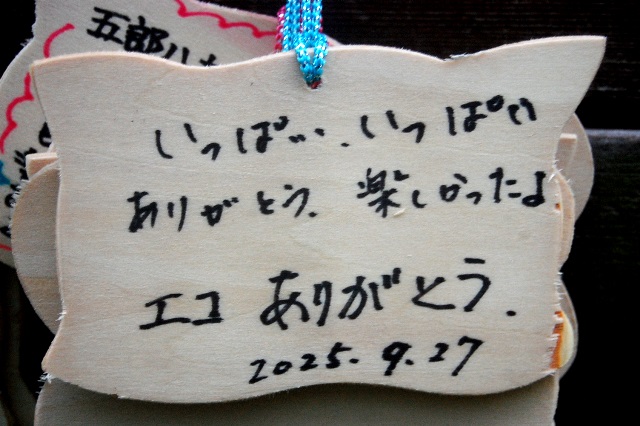 五郎
いっぱい、いっぱい
ありがとう。楽しかったよ
エコ ありがとう.
2025.9.27